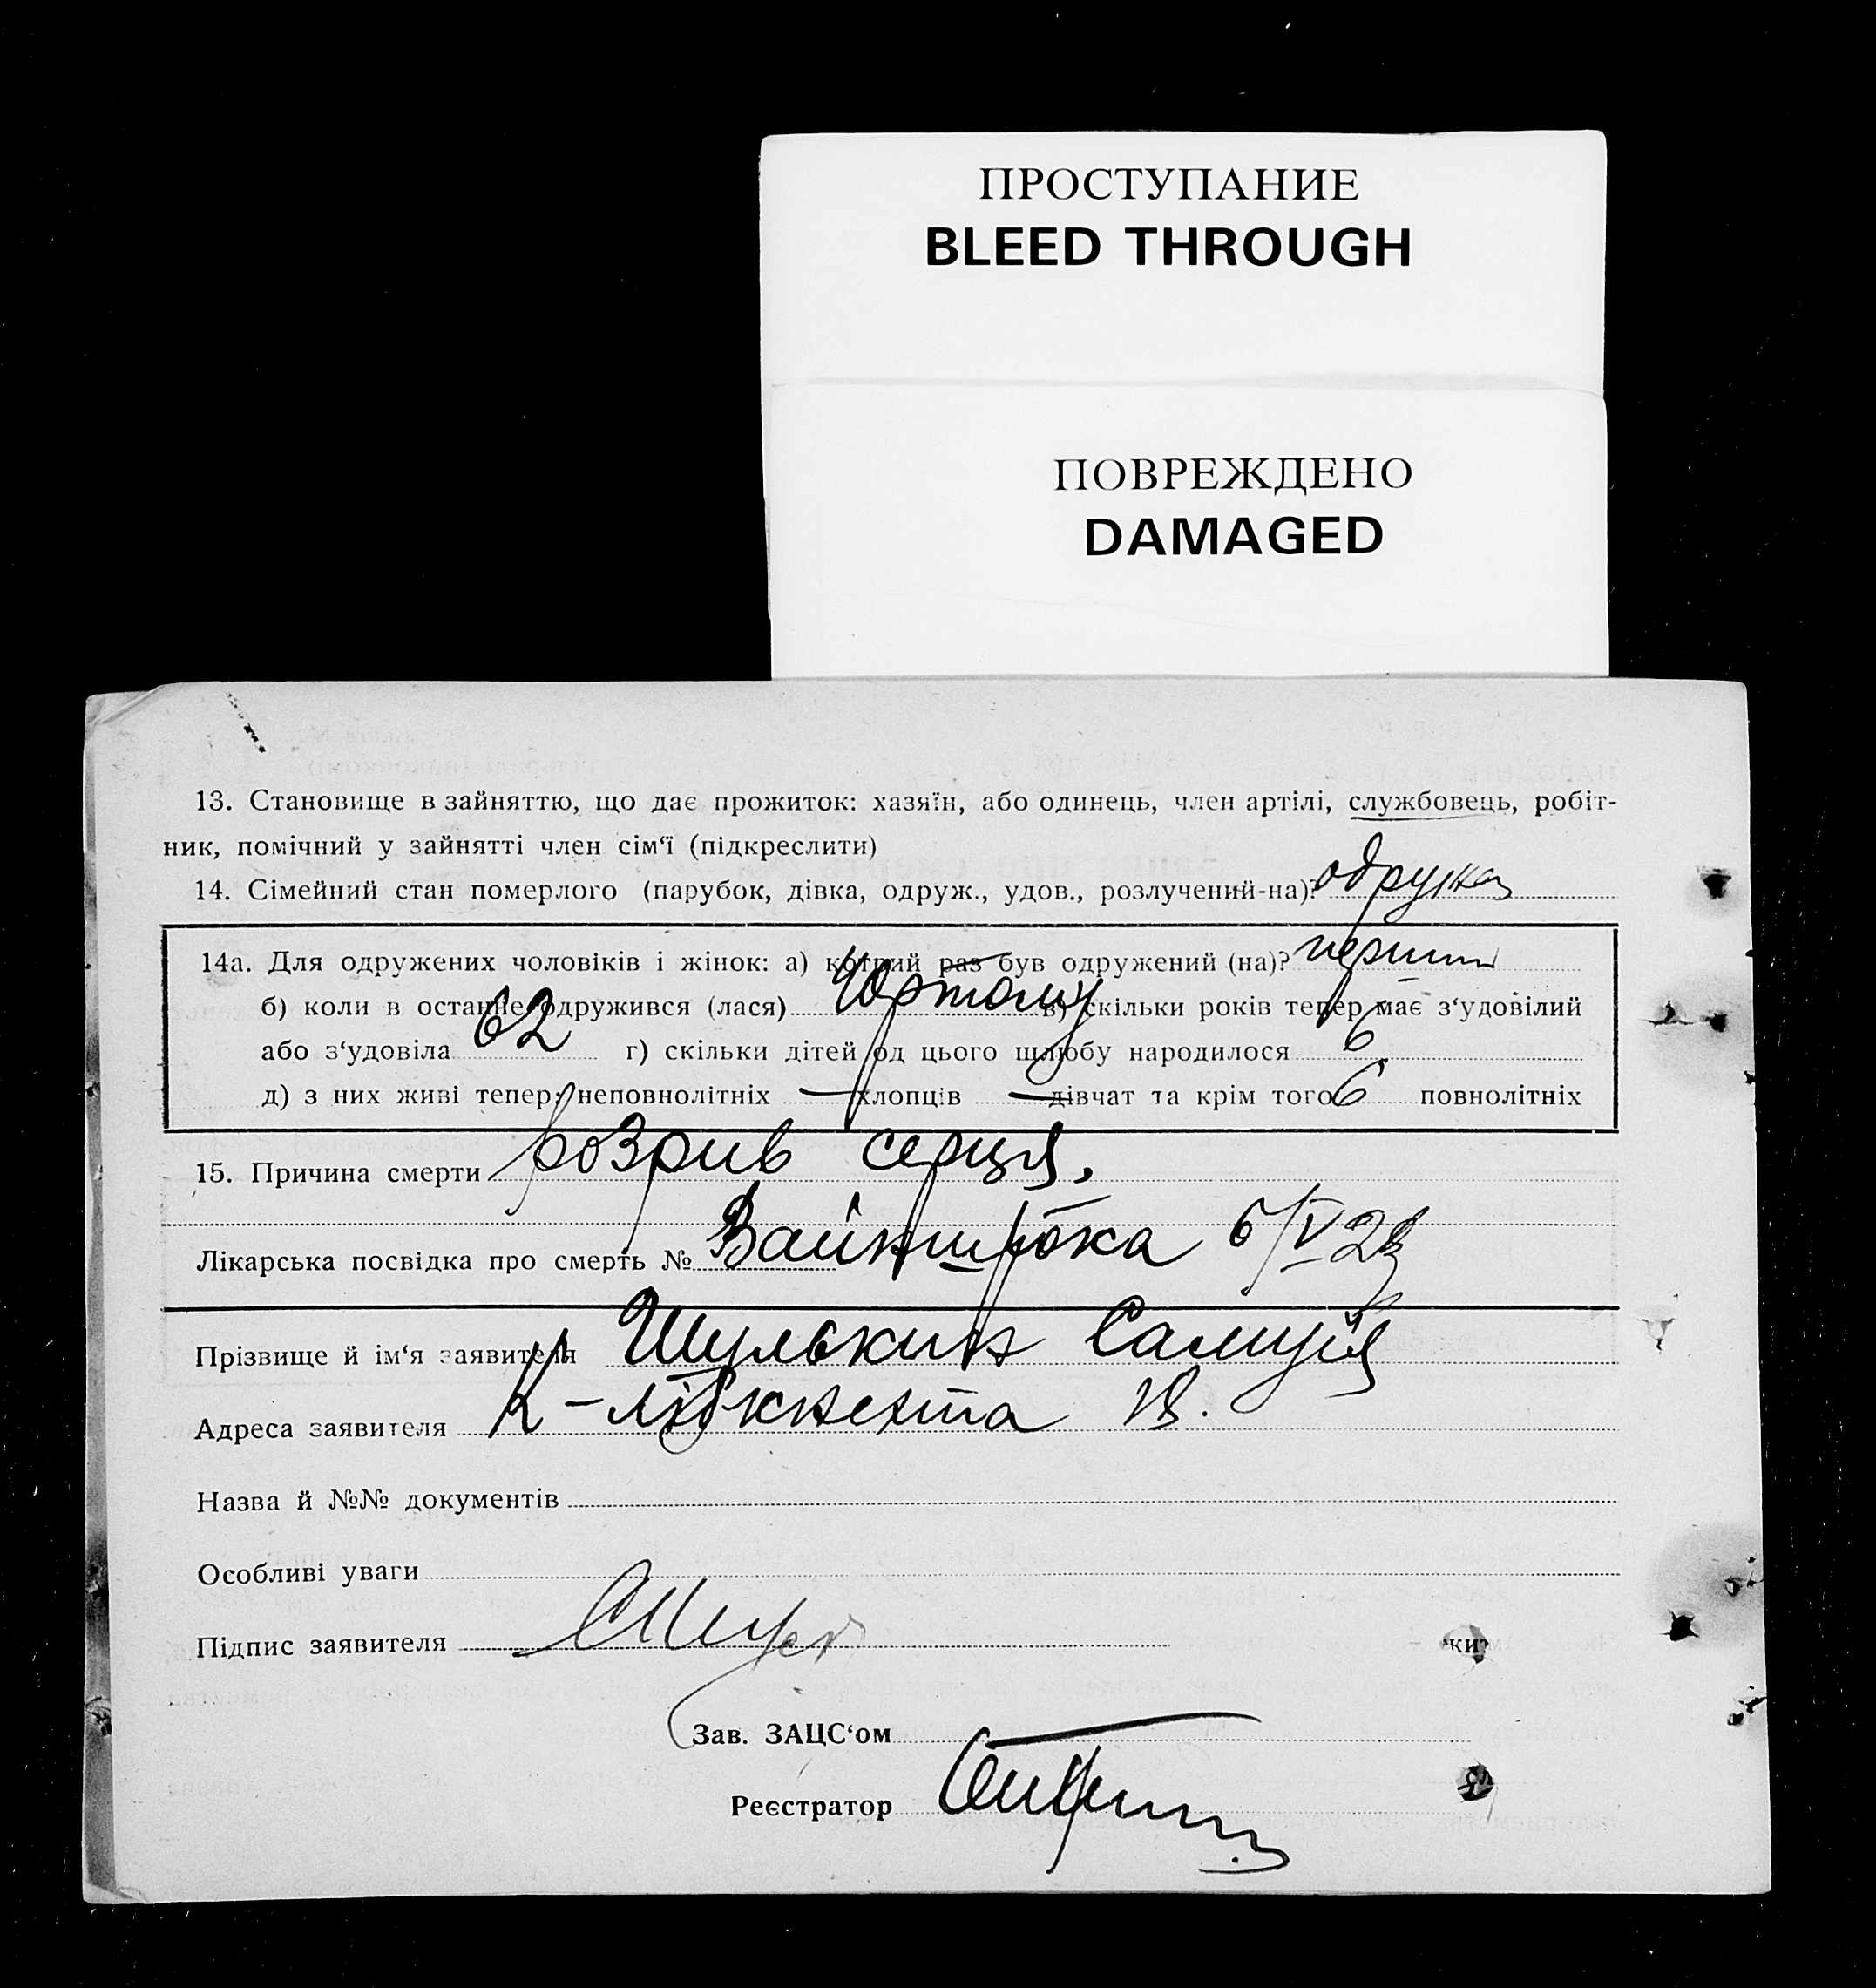 ПРОСТУПАНИЕ
BLEED THROUGH
ПОВРЕЖДЕНО
DAMAGED
13. Становище в зайняттю, що дає прожиток: хазяїн, або одинець, член артілі, службовець, робіт-
ник, помічний у зайнятті член сім‘ї (підкреслити)
14. Сімейний стан померлого (парубок, дівка, одруж., удов., розлучений-на)?
14а. Для одружених чоловіків і жінок: а) котрий раз був одружений (на)? перший
б) коли в останнє одружився (лася) в) скільки років тепер має з‘удовілий
або з‘удовіла 62 г) скільки дітей од цього шлюбу народилося 6
д) з них живі тепер: неповнолітніх — хлопців — дівчат та крім того 6 повнолітніх
15. Причина смерти розрив серця,
Лікарська посвідка про смерть № 6/V
Прізвище й ім‘я заявителя Шулькин
Адреса заявителя К-Лібкнехта
Назва й №№ документів
Особливі уваги
Підпис заявителя
Зав. ЗАЦС‘ом
Реєстратор